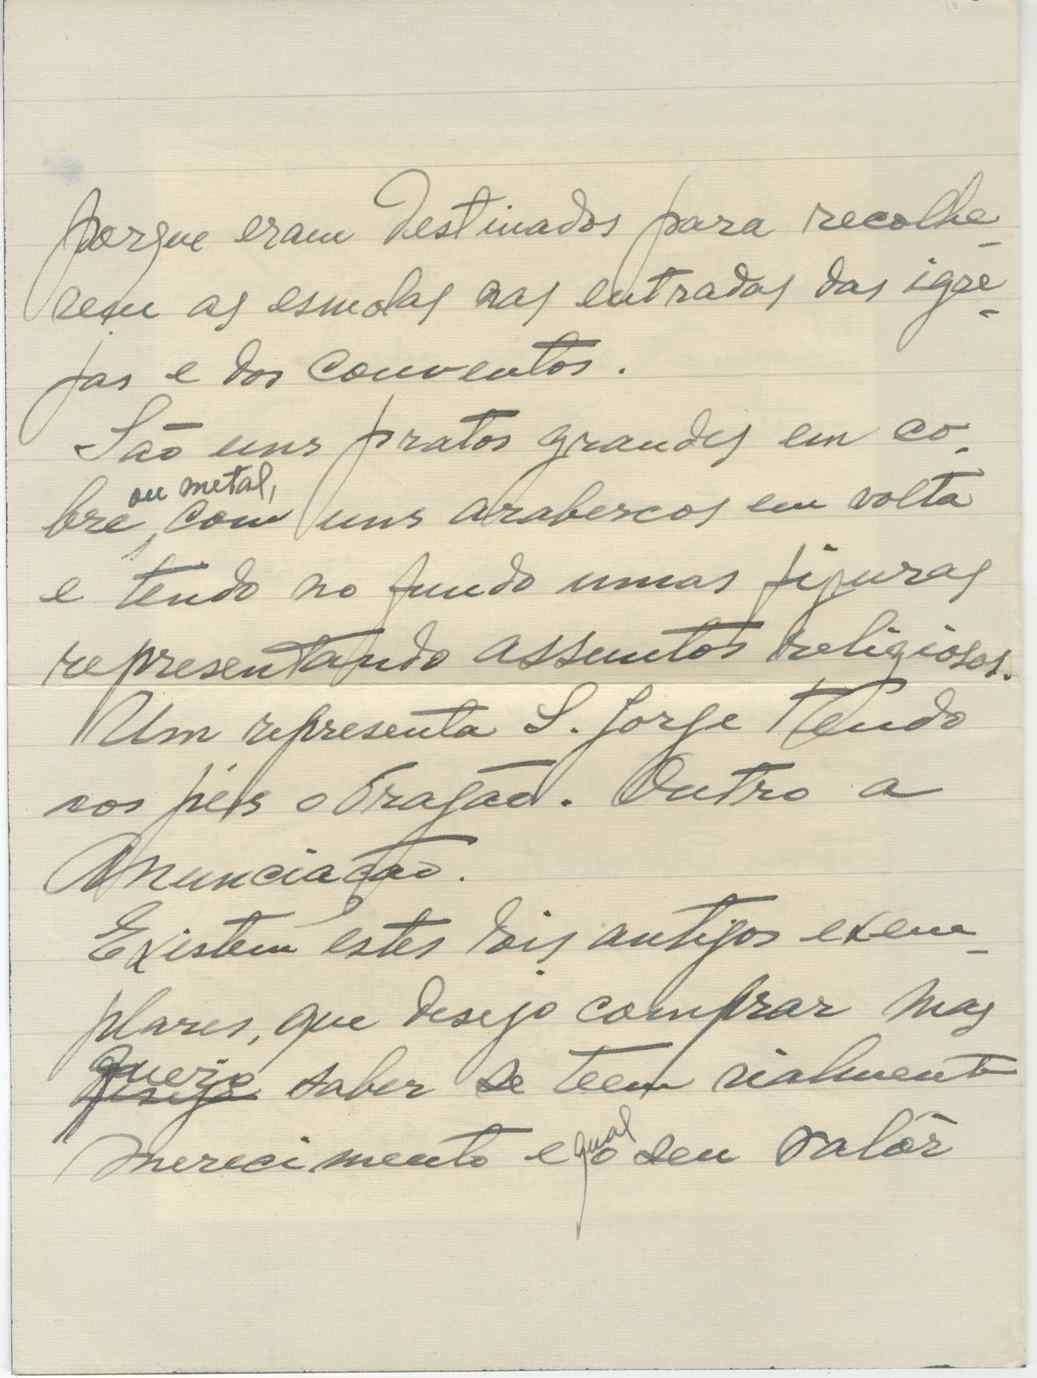 porque eram destinados para recolhe-
rem as esmolas nas entradas das igre-
jas e dos conventos.
São uns pratos grandes em co-
bre, ou metal, com uns arabescos em volta
e tendo no fundo umas figuras
representando assuntos religiosos.
Um representa S. Jorge tendo
nos péis o Dragão. Outro a
Anunciacão.
Existem estes dois antigos exem-
plares, que desejo comprar mas
desejo queria saber se teem rialmente
merecimento e qual o seu valôr